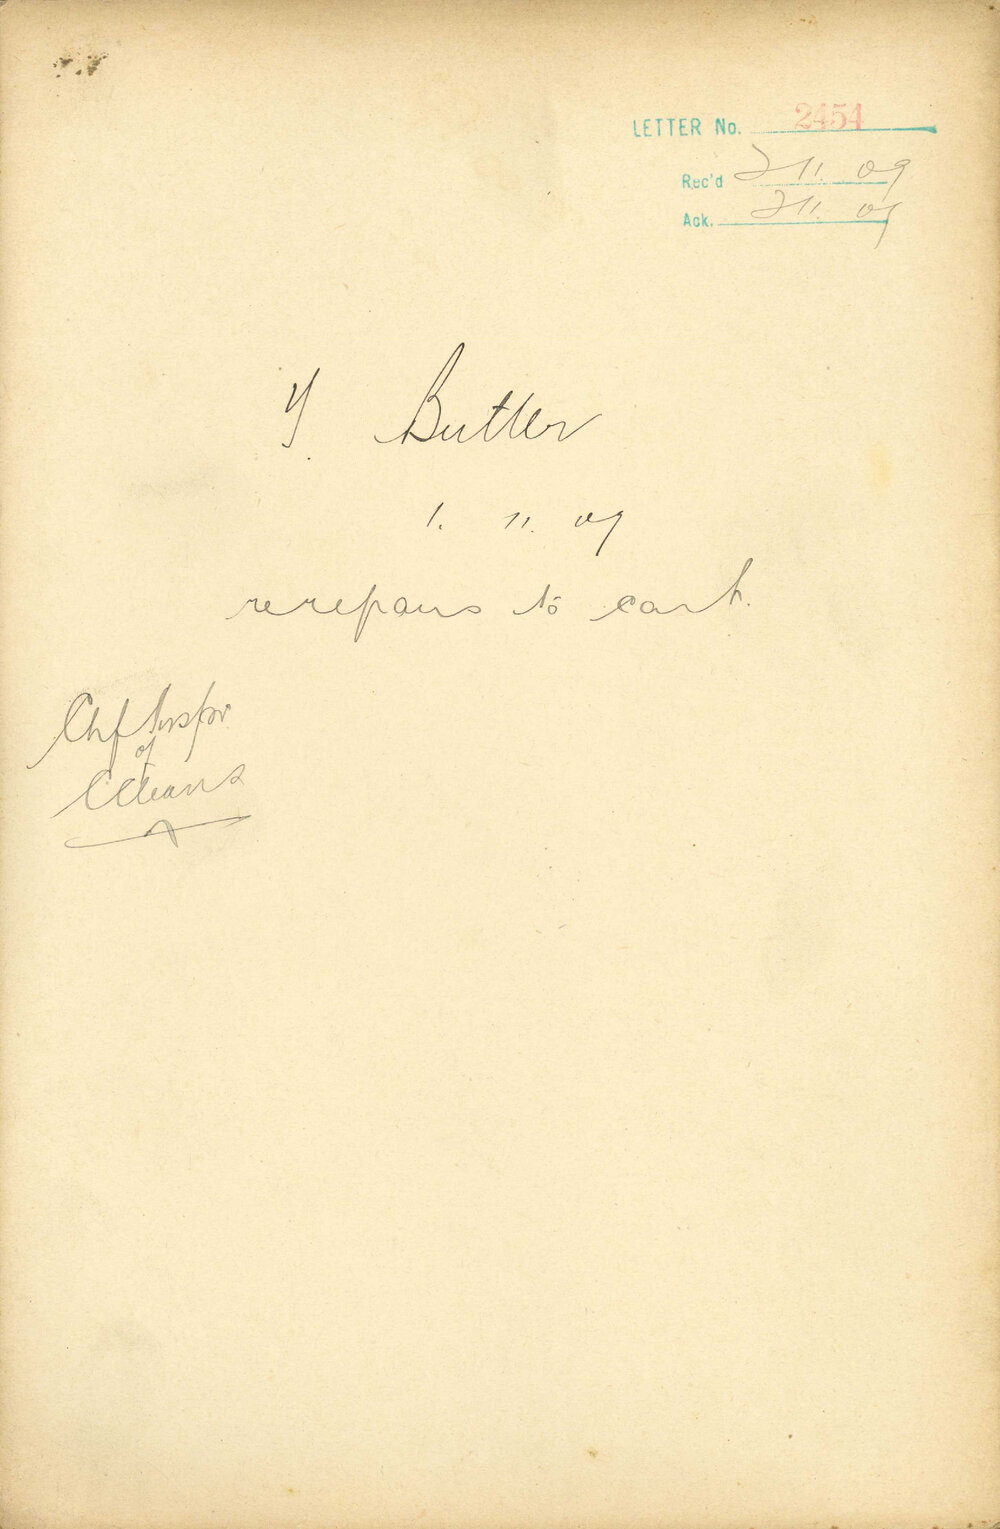 LETTER No. 2454
Rec'd 2 11. 09
Ack. 2 11. 09
Butler
1. 11. 09
re repairs to cart.
Chf Inspr
of
Cleans